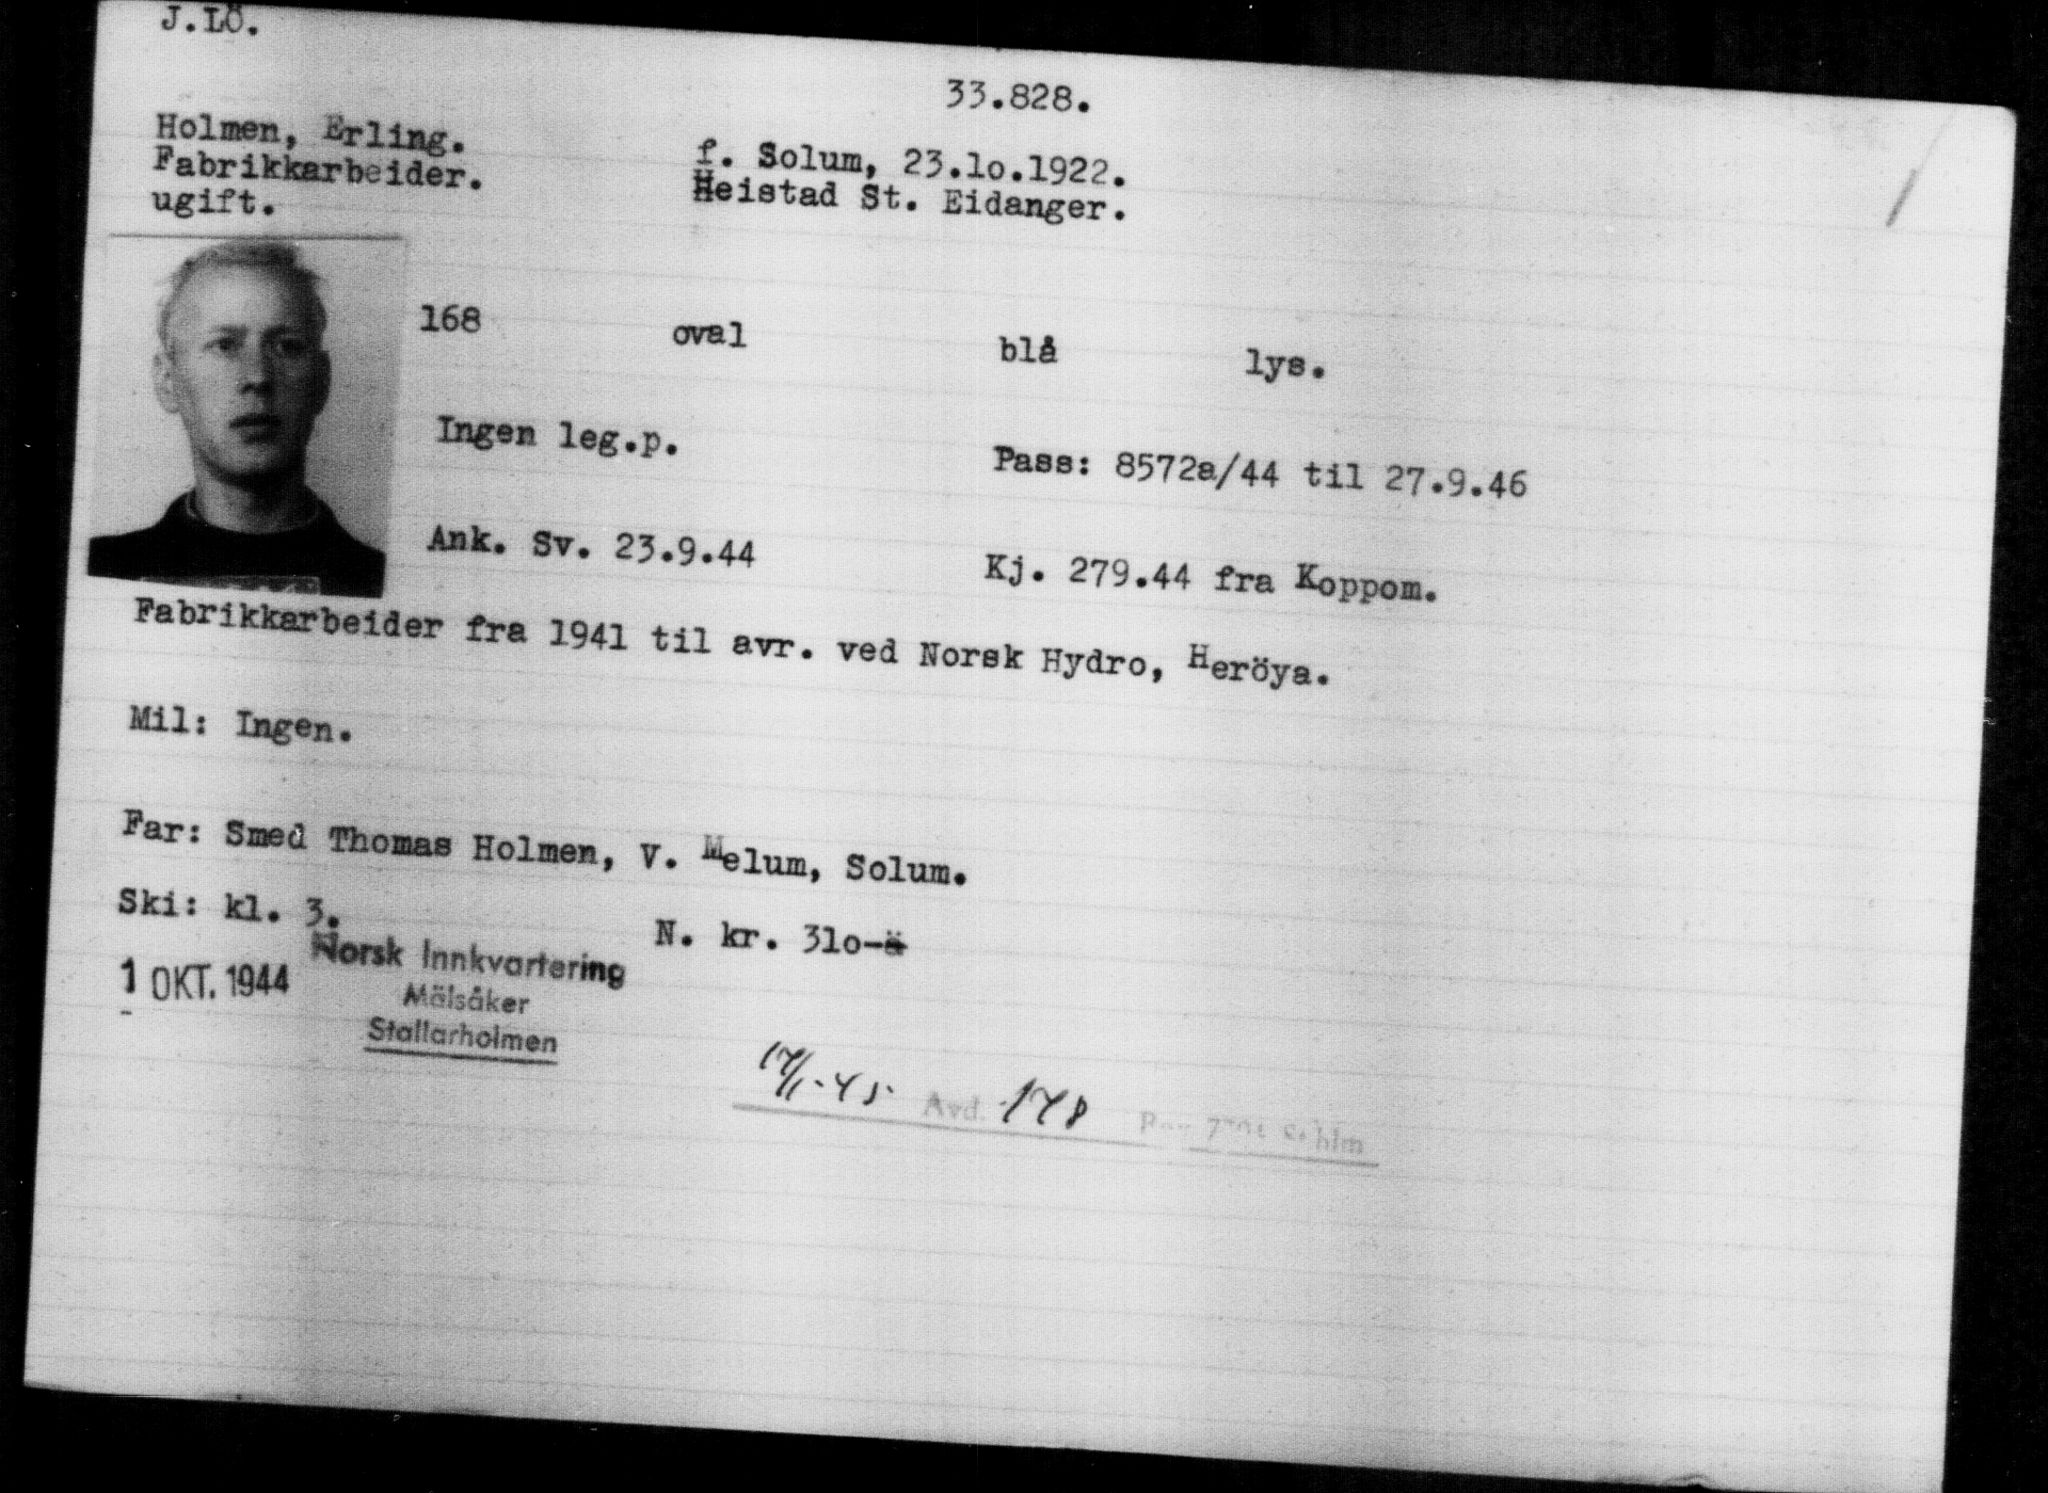 J.LÖ.
33.828.
Holmen, Erling.
Fabrikkarbeider.
ugift.
f. Solum, 23.lo.1922.
Heistad St. Eidanger.
168 oval blå lys.
Ingen leg.p. Pass: 8572a/44 til 27.9.46
Ank. Sv. 23.9.44 Kj. 279.44 fra Koppom.
Fabrikkarbeider fra 1941 til avr. ved Norsk Hydro, Heröya.
Mil: Ingen.
Far: Smed Thomas Holmen, V. Melum, Solum.
Ski: kl. 3. N. kr. 31o-
Norsk Innkvartering
1 OKT. 1944
Mälsåker
Stallarholmen
17/1-45. Avd. 178